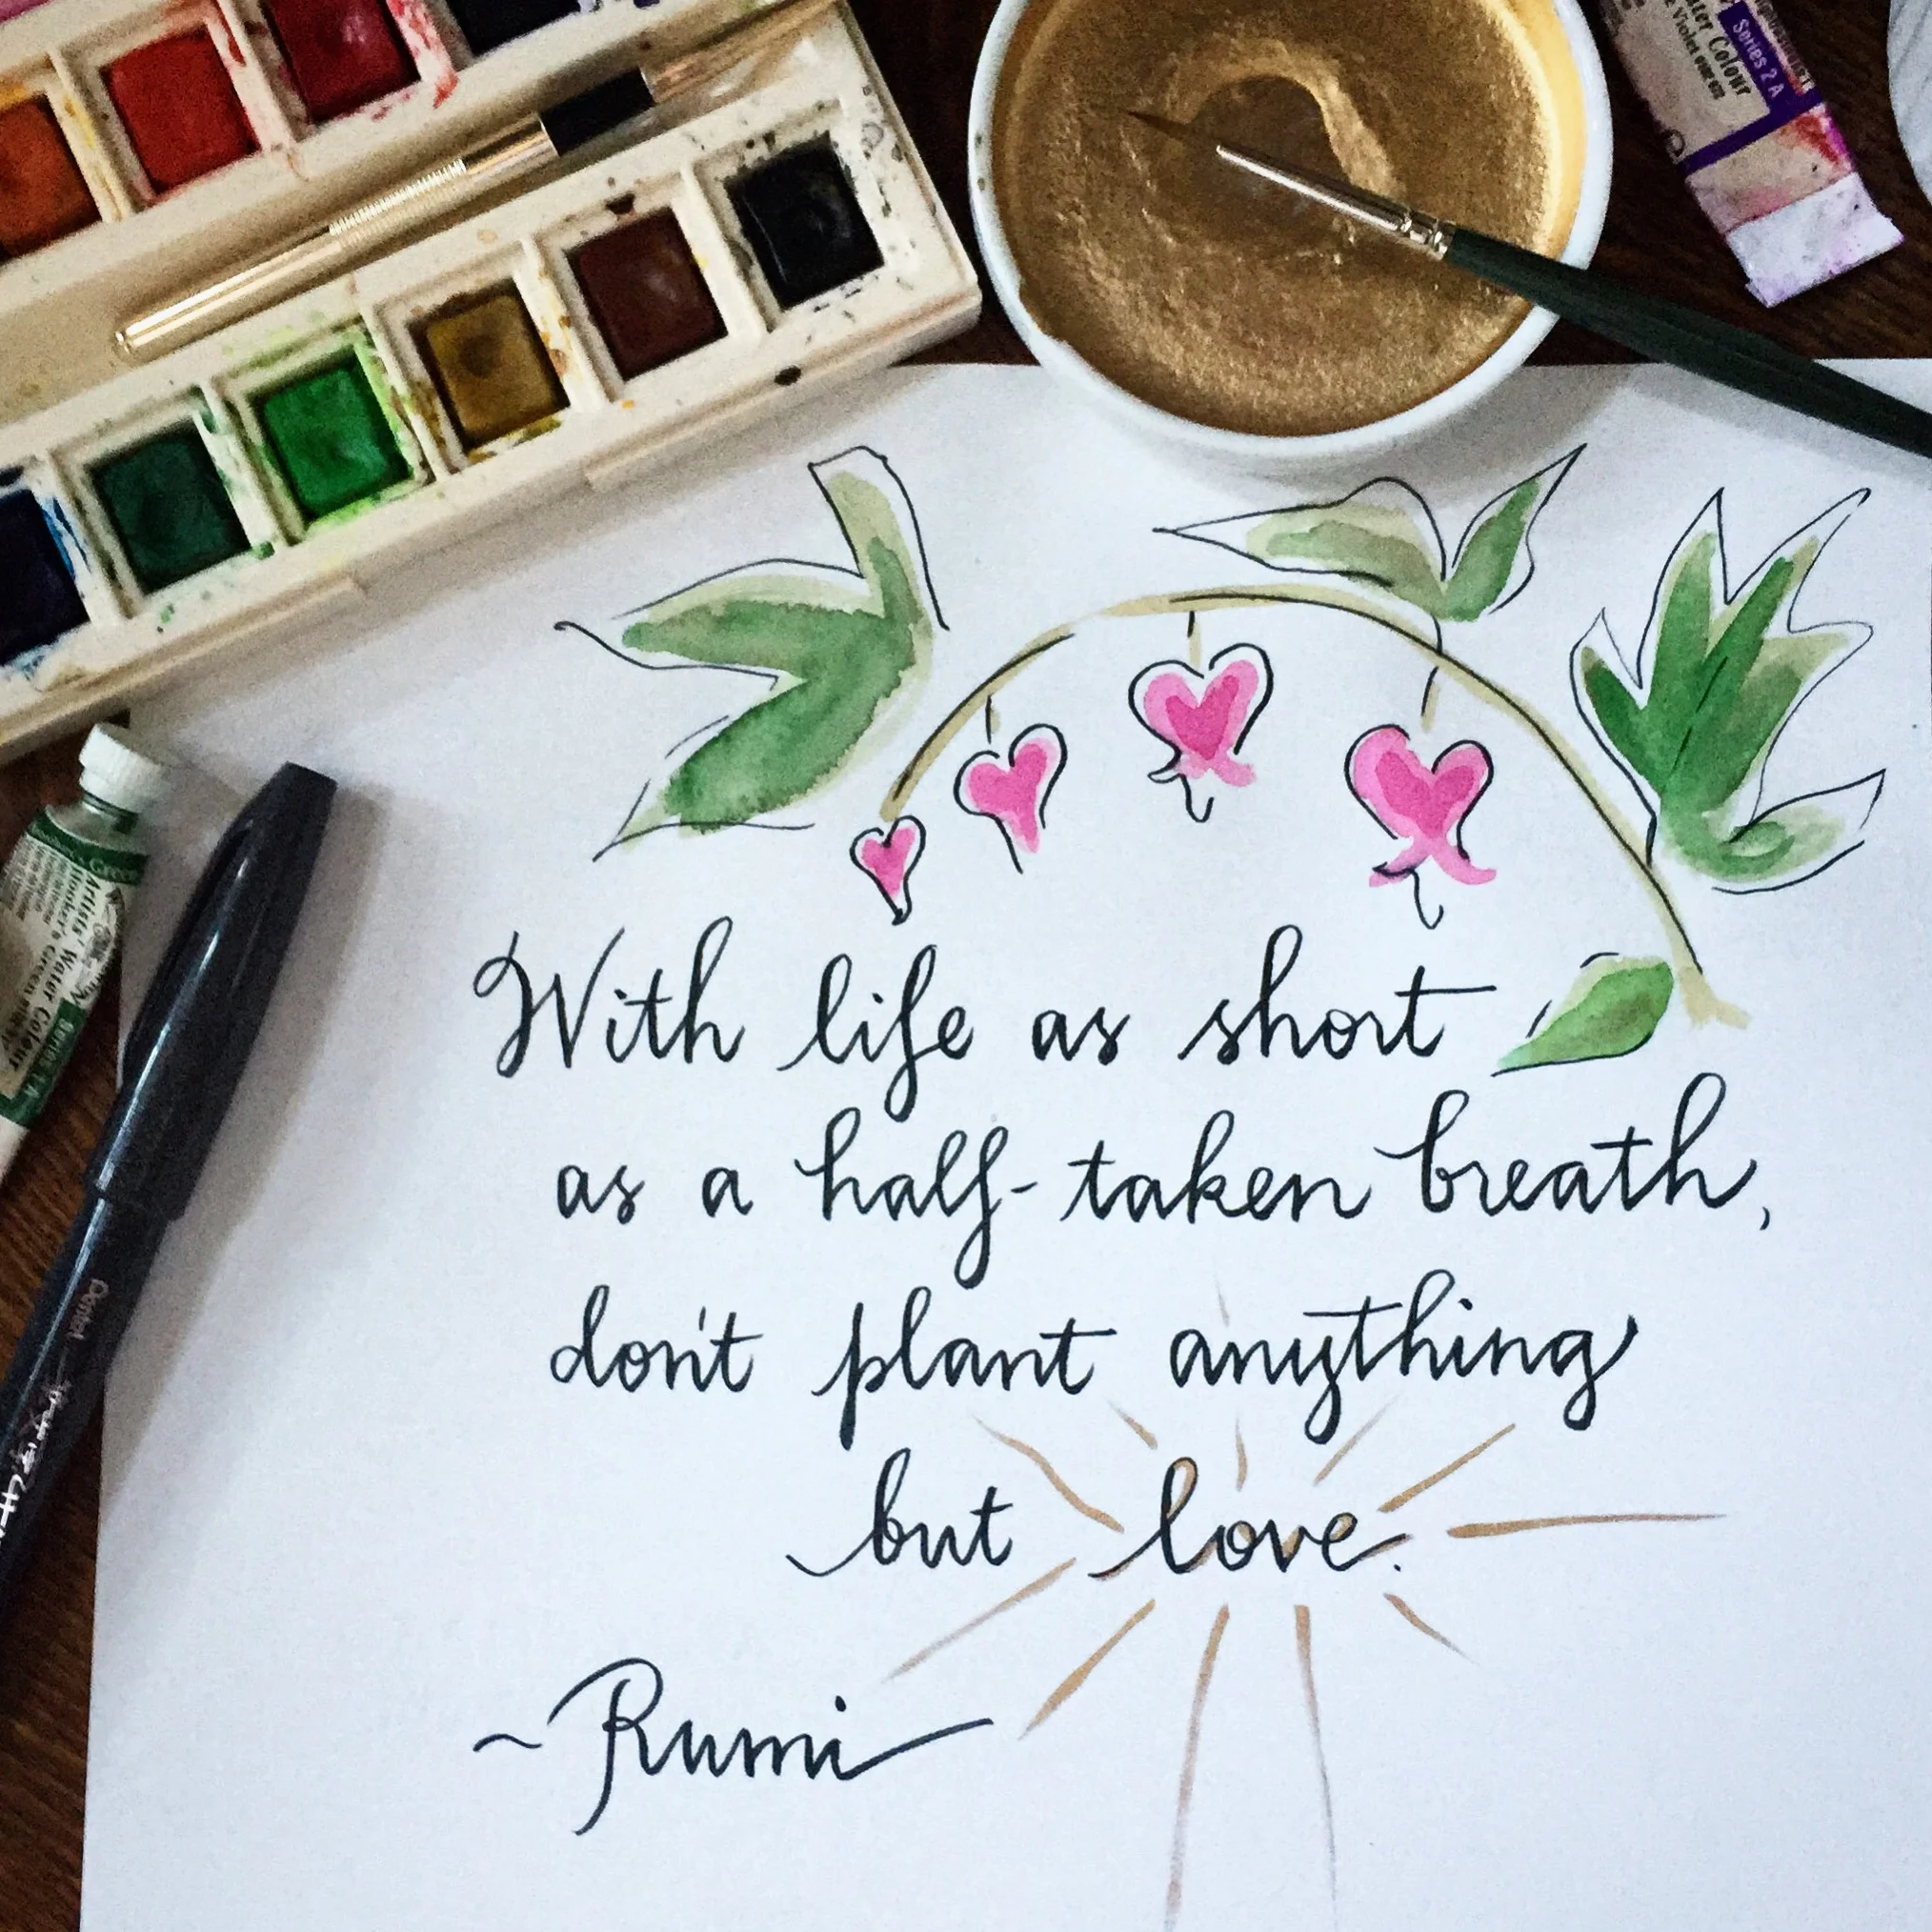 Series 2 A
With life as short
as a half-taken breath,
don't plant anything
but love.
~Rumi
Artists' Water Colour
Hooker's Green
Pentel